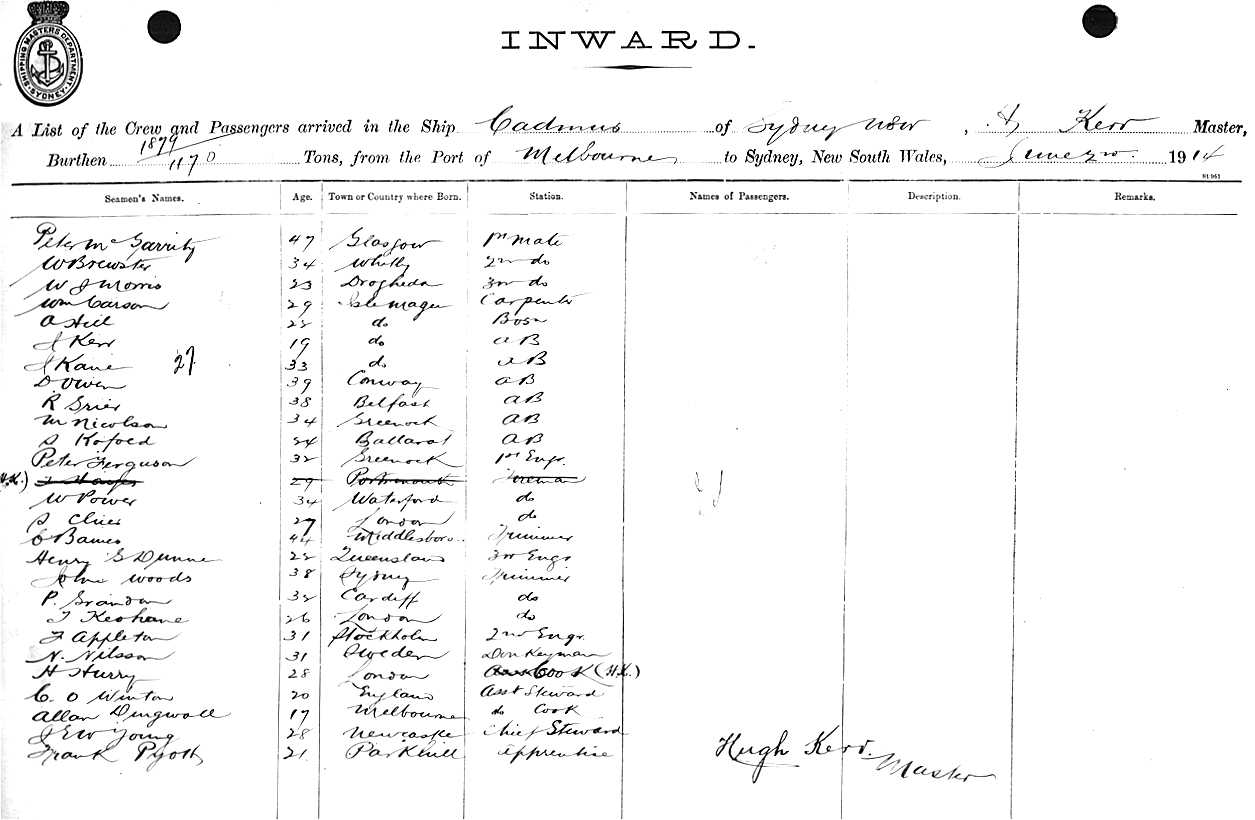 SHIPPING MASTERS DEPARTMENT SYDNEY
INWARD.
A List of the Crew and Passengers arrived in the Ship Cadmus of Sydney NSW, H Kerr Master,
Burthen 1879/1170 Tons, from the Port of Melbourne to Sydney, New South Wales, June 1914
Seamen's Names. Age. Town or Country where Born. Station. Names of Passengers. Description. Remarks.
Peter McGarrity 47 Glasgow 1st Mate
W Brewster 34 Whitby 2nd do
W J Morris 23 Drogheda 3rd do
Wm Carson 29 Isle Magee Carpenter
A Hill do Bosn
J Kerr 19 do AB
J Kane 27 33 do AB
D Owen 39 Conway AB
R Grier 38 Belfast AB
M Nicolson 34 Greenock AB
S Kofoed 24 Ballarat AB
Peter Ferguson 32 Greenock 1st Engr.
H.K.) 29 Fireman
W Power 34 Waterford do
S 27 London do
44 Middlesboro Trimmer
Henry G Dunne Queensland 3rd Engr
John Woods 38 Sydney Trimmer
P. 32 Cardiff do
T Keohane 26 London do
F Appleton 31 Stockholm 2nd Engr.
N. Nilsson 31 Sweden Donkeyman
H Hurry 28 London Cook (H.K.)
C. O Winton 20 England Asst Steward
Allan Dingwall 17 Melbourne do Cook
J E W Young 28 Newcastle Chief Steward
Frank Pyott 21 Parkhill Apprentice
Hugh Kerr.
Master